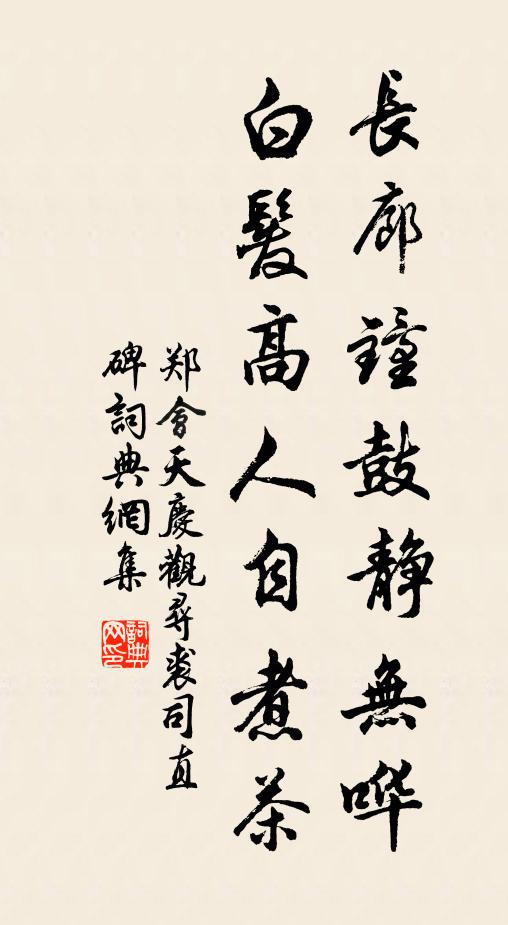 長廊鐘鼓靜無哗
白髮高人自煮茶
郑會天慶觀尋裘司直
碑詞典網集
詞典
网印